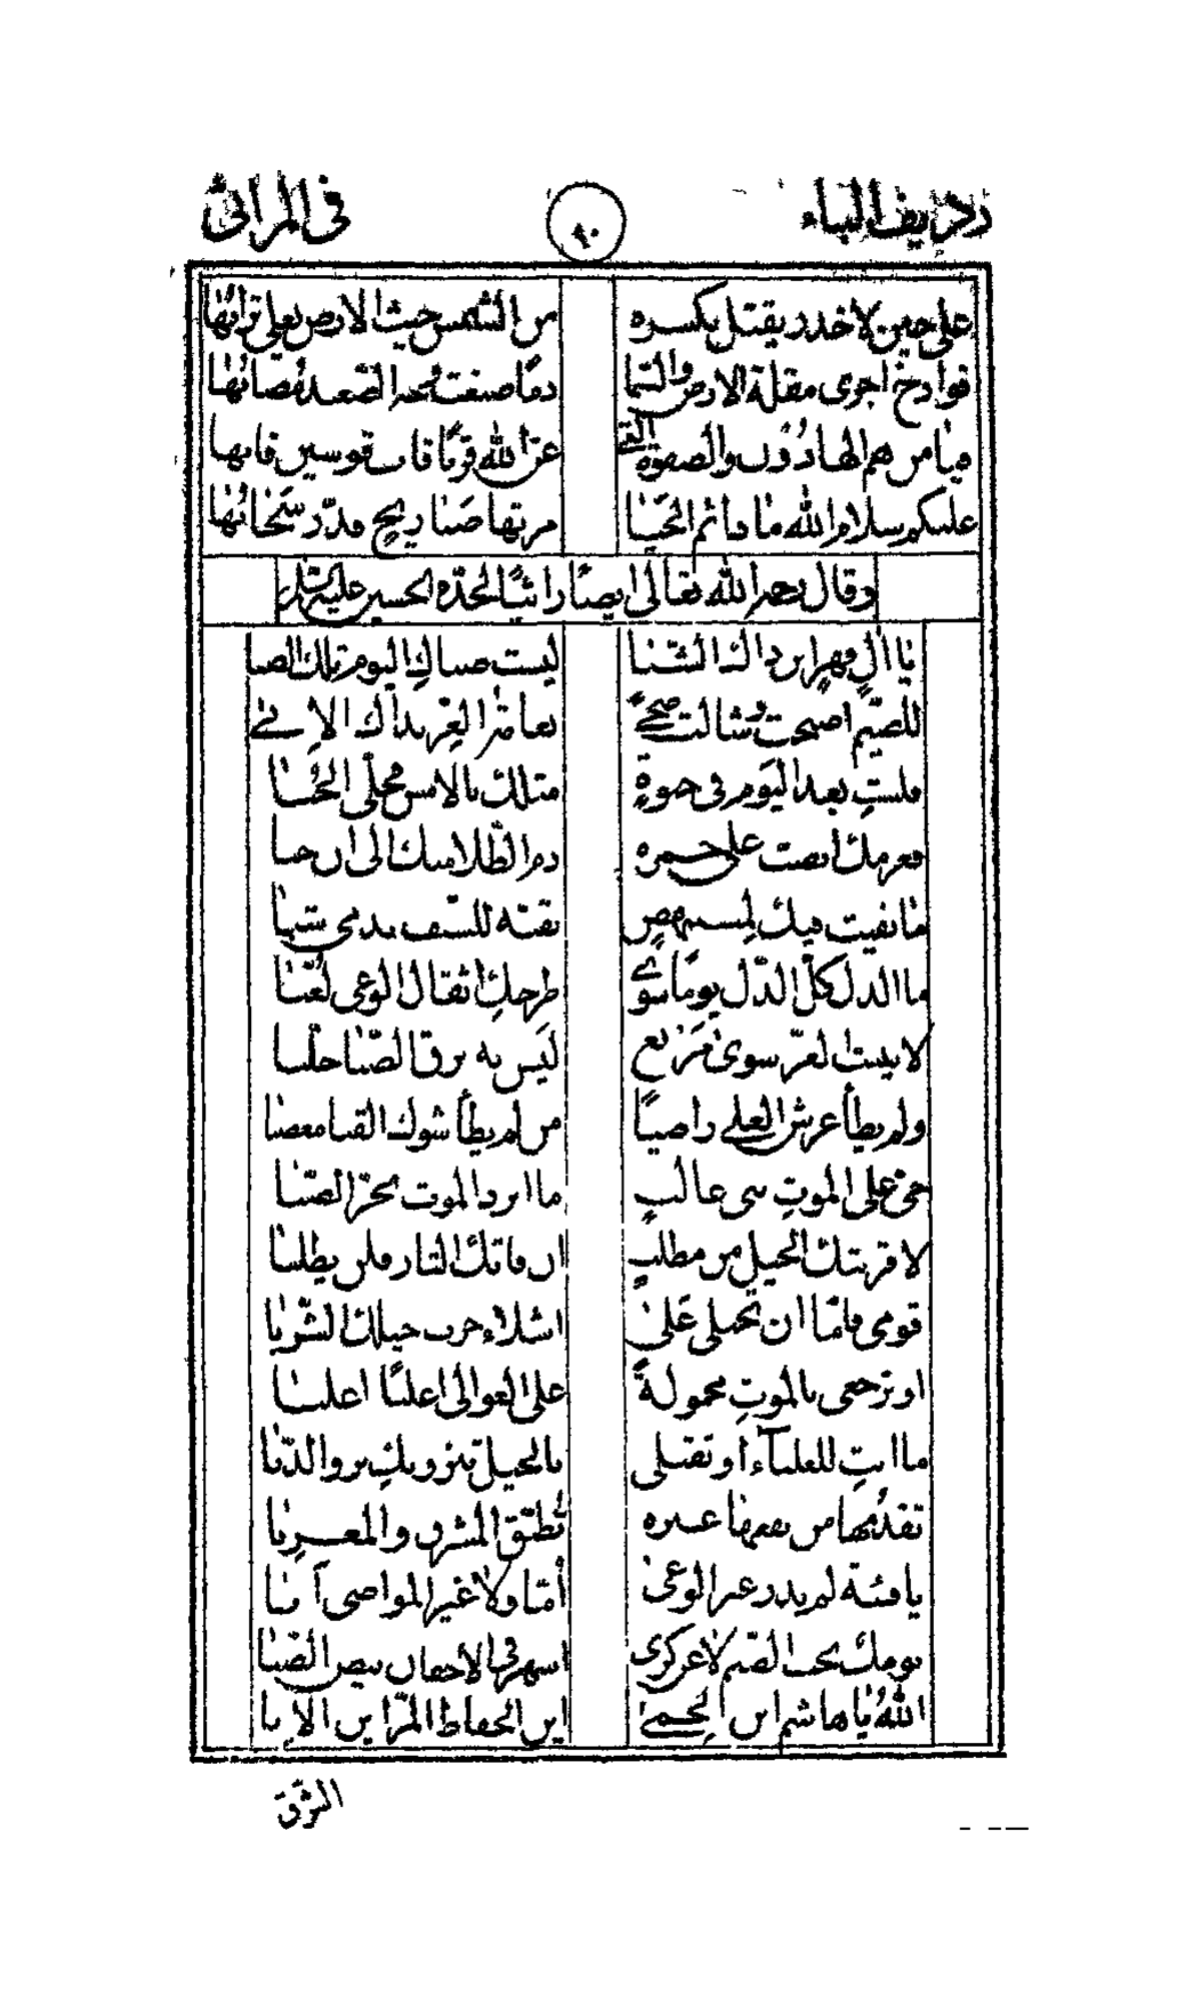 رديف الباء ٩٠ في المراثي
على حين لا خدر يقتل بكسره من الشمس حيث الارض يغلي ترابها
فوادح اجرى مقلة الارض والسما دما صبغت
فيا من هم الهادون والصفوة التي عن الله قربا قاب قوسين قابها
عليكم سلام الله ما قائم الحيا مرتها صبا ريح فدر سحابها
وقال رحمه الله تعالى ايضا راثيا لجده الحسين عليه السلام
يا آل فهر اين ذاك الشبا ليست ضباك اليوم تلك الضبا
للضيم اصبحت وشالت ضحى نعامة العز بذاك الابي
فلست بعد اليوم في حبوة مثلك بالامس فحلي الحبا
فعزمك انصب على جمره دم الطلا منك الى ان خبا
ما بقيت فيك لمستنهض بقية للسيف تدمي شبا
ما الذل كل الذل يوما سوى طرحك اثقال الوغى لغبا
لا ينبت العز سوى مربع ليس به برق الضبا خلبا
ولم يطأ عرش العلى راضيا من لم يطأ شوك القنا مغضبا
حي على الموت بني غالب ما ابرد الموت بحر الضبا
لا قربتك الخيل من مطلب ان فاتك الثار فلن يطلبا
قومي فاما ان تحيلي على اشلاء حرب خيلك الشزبا
او ترجعي بالموت محمولة على العوالي اغلبا اغلبا
ما انت للعلياء او تقبلي بالخيل تنزو بك نزو الدبا
تقدمها من نقعها غبرة تطبق المشرق والمغربا
يا فئة لم تدر غير الوغى اما ولا غير المواضي ابا
نومك تحت الضيم لا عن كرى اسهر في الاجفان بيض الضبا
الله يا هاشم اين الحمى اين الحفاظ المر اين الابا